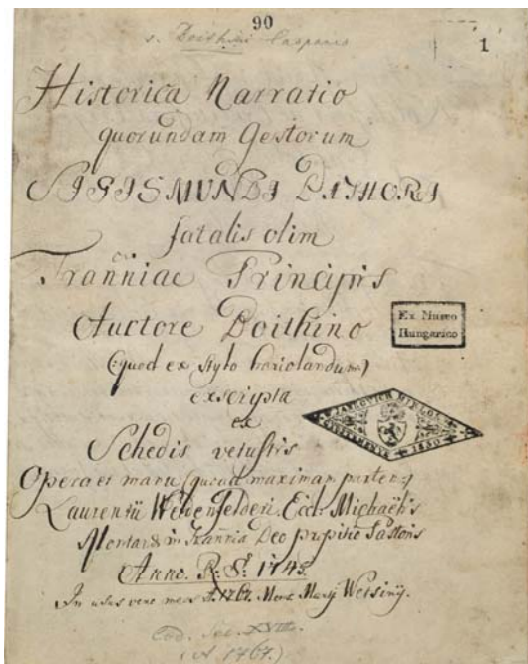 90
1
v. Boithini Casparis
Historica Narratio
quorundam Gestorum
SIGISMUNDI BATHORI
fatalis olim
Tranniae Principis
Auctore Boithino
(: quod ex stylo hariolandum :)
exscripta
ex
Schedis vetustis
Opera et manu (quoad maximam partem :)
Laurentii Weidenfelderi Eccl. Michaëlis
Montan in Trannia Deo propitio Pastoris
Anno. R. S. 1745
In usus vero meos A. 1767. Mens. Marty
Cod. Sec. XVIII.
(A 1767.)
Ex Museo
Hungarico
JANKOVICH MIKLÓS
GYŰJTEMÉNYE
1830